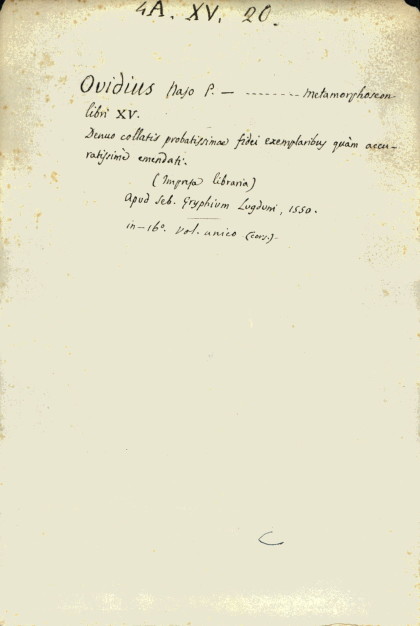 4A. XV. 20.
Ovidius Naso P. — -------- Metamorphoseon
libri XV.
Denuo collatis probatissimae fidei exemplaribus quàm accu-
ratissimè emendati.
(Impresa libraria)
Apud Seb. Gryphium Lugduni, 1550.
in-16º. vol. unico (cors.)